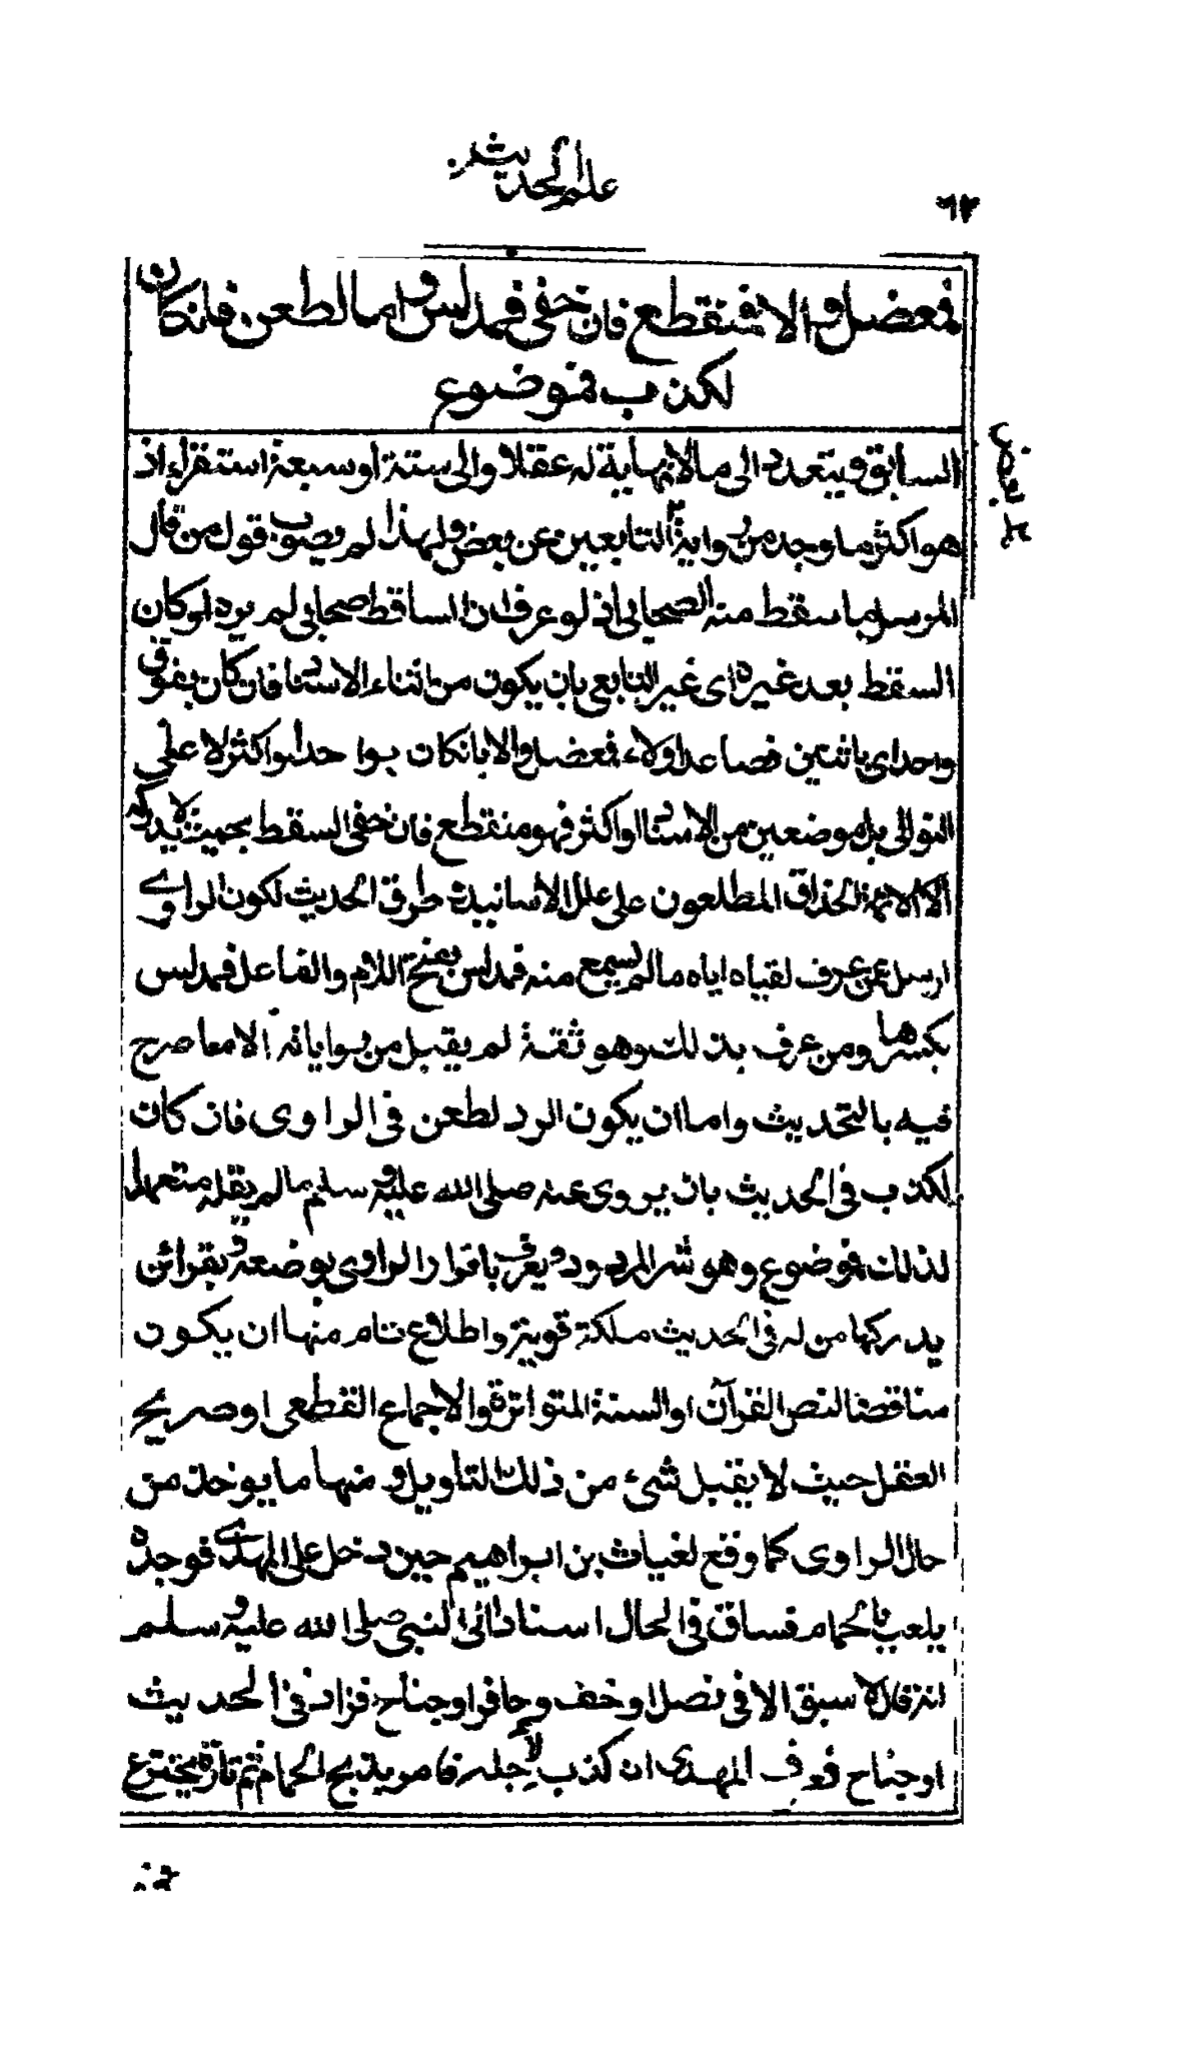 علم الحديث
٦٢
فمعضل والا فمنقطع فان خفى فمدلس واما لطعن فانكان
لكذب فموضوع
السابق ويتعدد الى ما لا نهاية له عقلا والى ستة او سبعة استقراء اذ
هو اكثر ما وجد من رواية التابعين عن بعض ولهذا لم يصوب قول من قال
المرسل ما سقط منه الصحابى اذ لو عرف ان الساقط صحابى لم يرد او كان
السقط بعد غيره اى غير التابع بان يكون من اثناء الاسناد فان كان بفوق
واحد اى باثنين فصاعدا ولاء فمعضل والا بانكان بواحد او اكثر لا على
التوالى بل موضعين من الاسناد او اكثر فهو منقطع فان خفى السقط بحيث لا يدركه
الا الائمة الحذاق المطلعون على علل الاسانيد و طرق الحديث لكون الراوى
ارسل عمن عرف لقياه اياه ما لم يسمع منه فمدلس بفتح اللام والفاعل مدلس
بكسرها ومن عرف بذلك وهو ثقة لم يقبل من رواياته الا ما صرح
فيه بالتحديث واما ان يكون الرد لطعن فى الراوى فان كان
لكذب فى الحديث بان يروى عنه صلى الله عليه و سلم ما لم يقله متعمدا
لذلك فموضوع وهو شر المردود و يعرف باقرار الراوى بوضعه و بقرائن
يدركها من له فى الحديث ملكة قوية واطلاع تام منها ان يكون
مناقضا لنص القرآن او السنة المتواترة والاجماع القطعى او صريح
العقل حيث لا يقبل شىء من ذلك التاويل و منها ما يوخذ من
حال الراوى كما وقع لغياث بن ابراهيم حين دخل على المهدى فوجده
يلعب بالحمام فساق فى الحال اسنادا الى النبى صلى الله عليه و سلم
انه قال لا سبق الا فى نصل او خف و حافر او جناح فزاد فى الحديث
او جناح فعرف المهدى ان كذب لاجله فامر بذبح الحمام ثم تارة يخترع